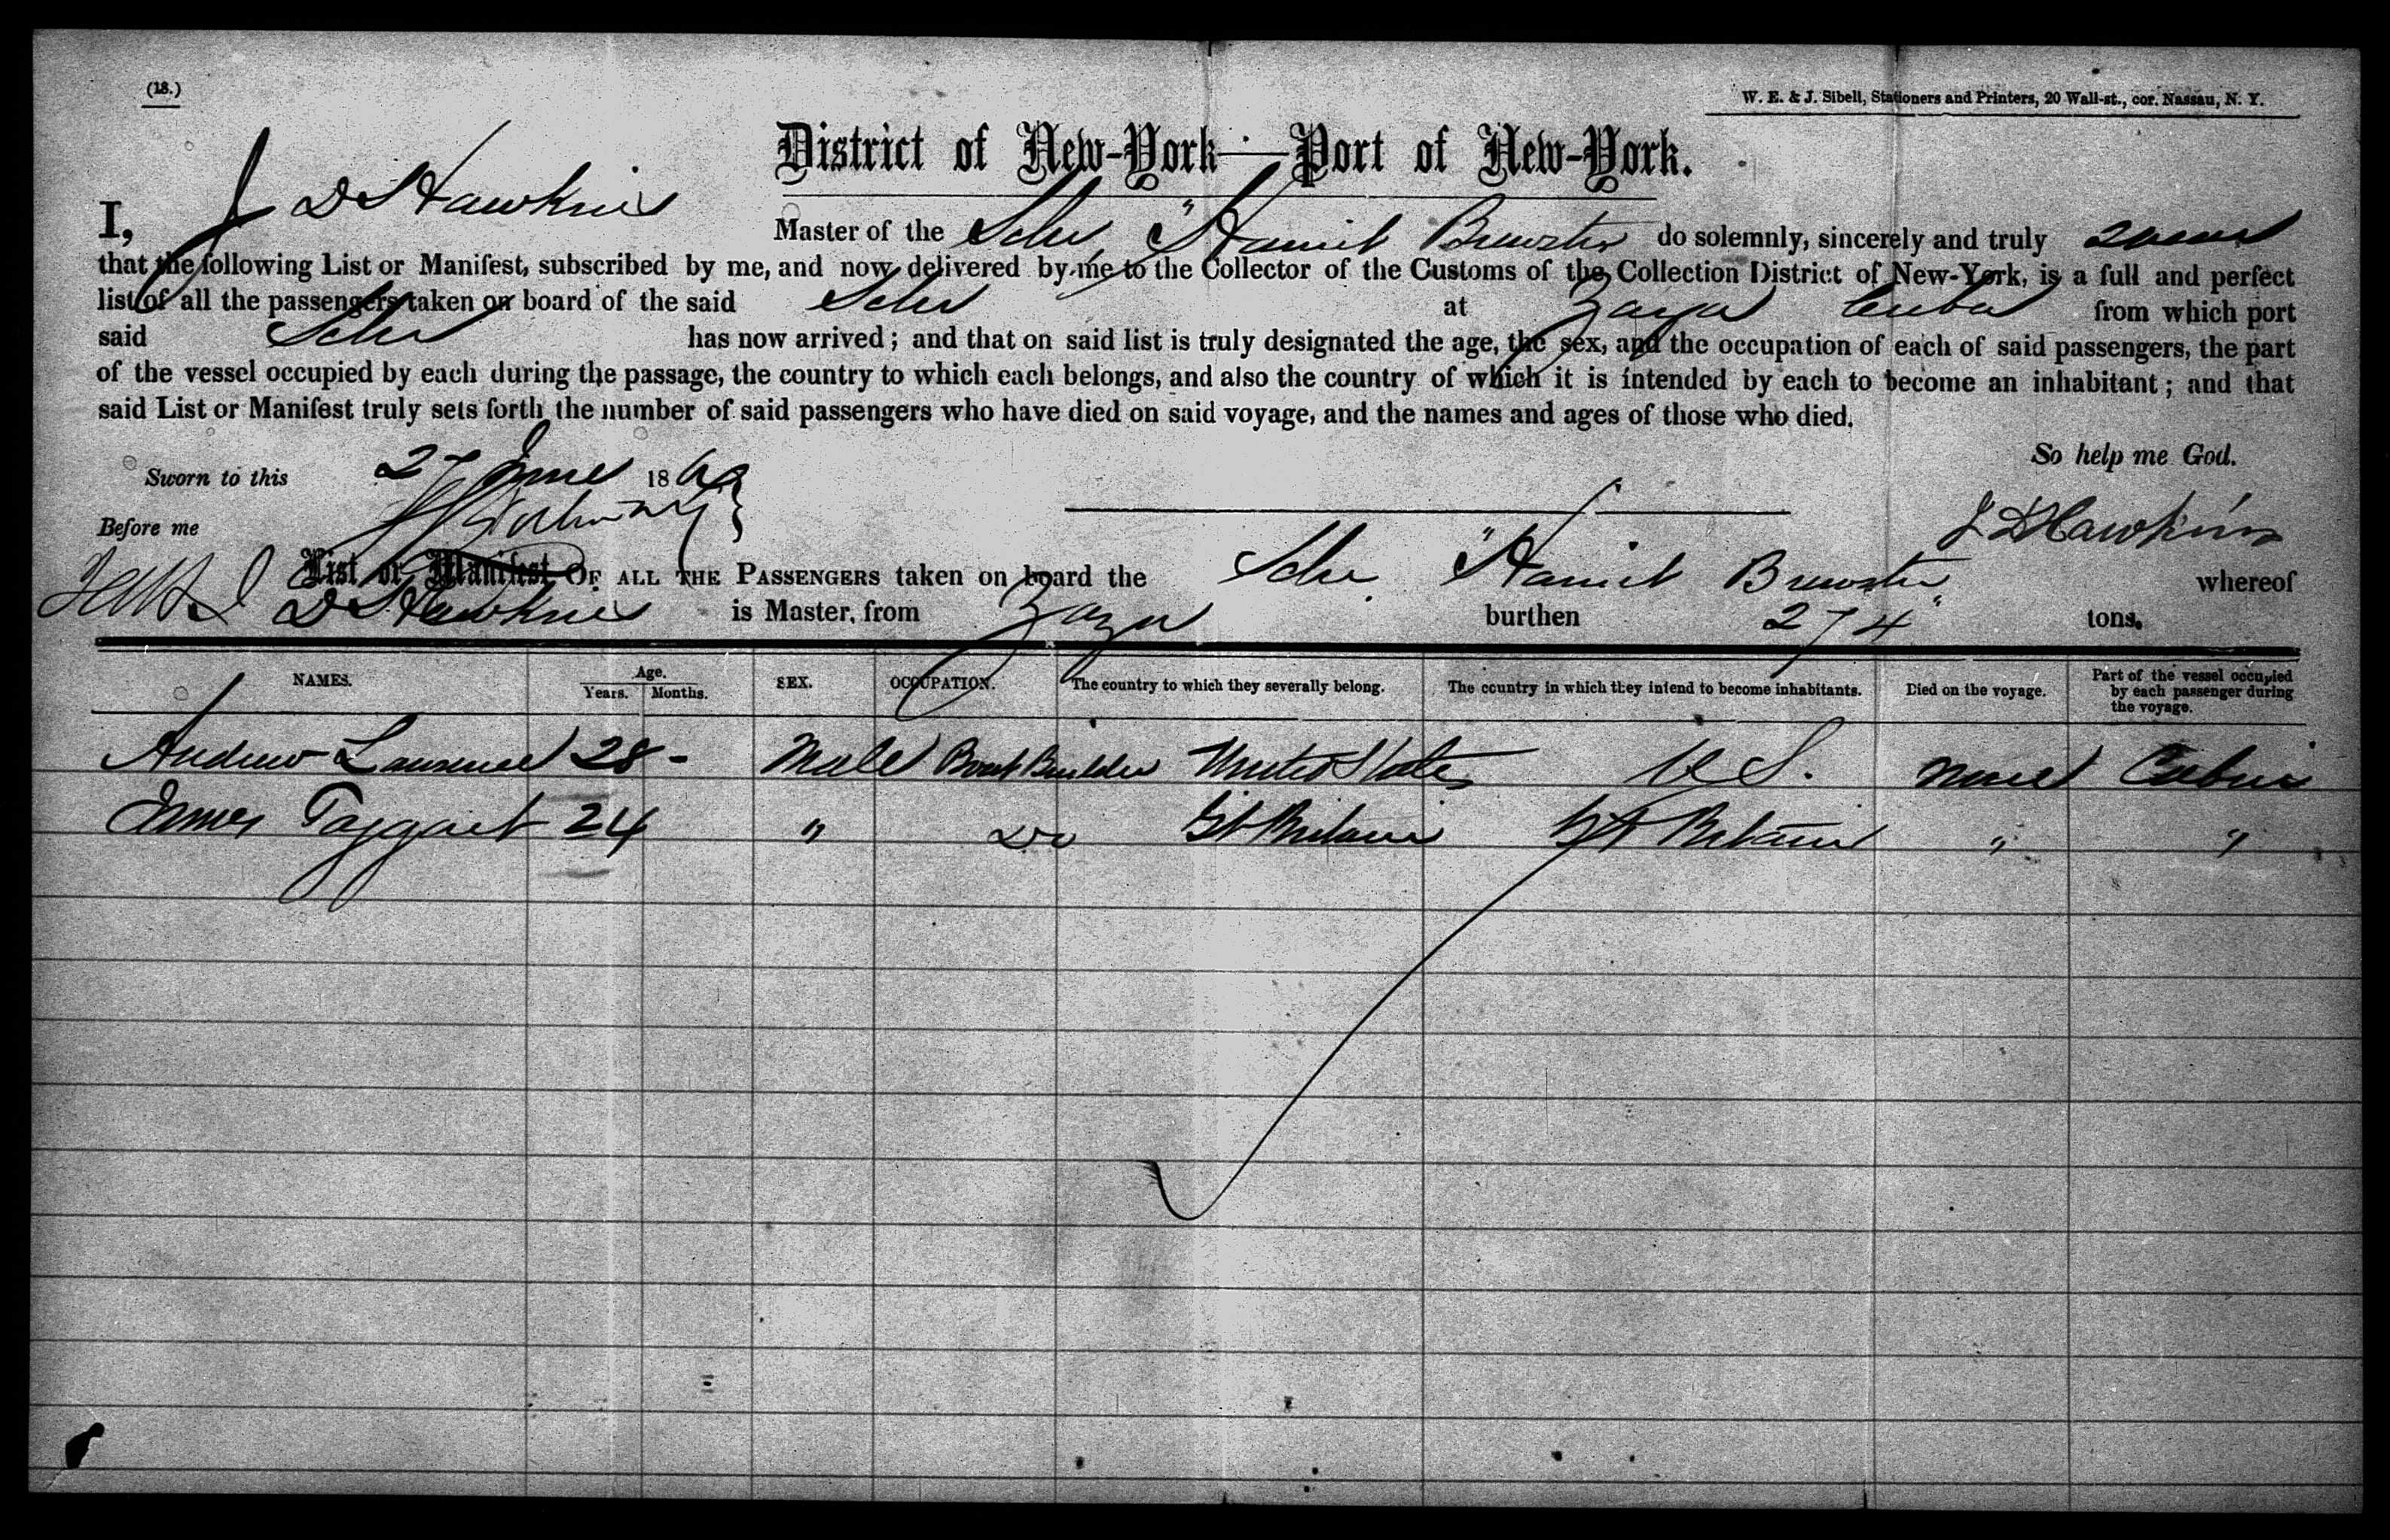 (18.)
W. E. & J. Sibell, Stationers and Printers, 20 Wall-st., cor. Nassau, N. Y.
District of New-York—Port of New-York.
I, J D S Hawkins Master of the Schr "Harriet Brewster do solemnly, sincerely and truly swear
that the following List or Manifest, subscribed by me, and now delivered by me to the Collector of the Customs of the Collection District of New-York, is a full and perfect
list of all the passengers taken on board of the said Schr at Zaza Cuba from which port
said Schr has now arrived; and that on said list is truly designated the age, the sex, and the occupation of each of said passengers, the part
of the vessel occupied by each during the passage, the country to which each belongs, and also the country of which it is intended by each to become an inhabitant; and that
said List or Manifest truly sets forth the number of said passengers who have died on said voyage, and the names and ages of those who died.
So help me God.
Sworn to this 27 June 186
Before me
J D Hawkins
List or Manifest OF ALL THE PASSENGERS taken on board the Schr "Harriet Brewster" whereof
D S Hawkins is Master, from Zaza burthen 274 tons.
NAMES. Age. Years. Months. SEX. OCCUPATION. The country to which they severally belong. The country in which they intend to become inhabitants. Died on the voyage. Part of the vessel occupied by each passenger during the voyage.
Andrew Lawrence 28 - Male Boat Builder United States U S. None Cabin
James Taggart 24 " Do Gt Britain Gt Britain " "